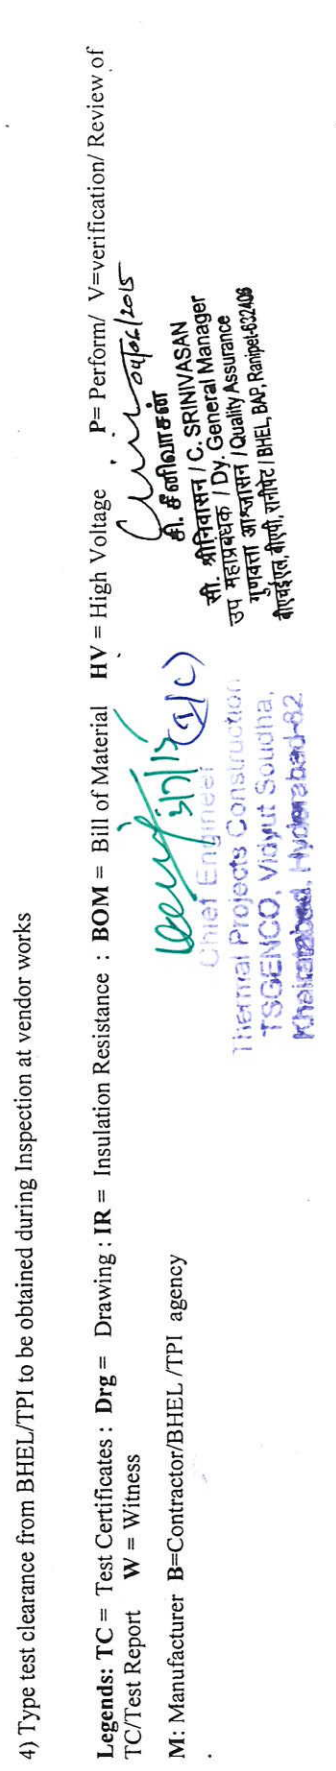 4) Type test clearance from BHEL/TPI to be obtained during Inspection at vendor works
Legends: TC = Test Certificates : Drg = Drawing : IR = Insulation Resistance : BOM = Bill of Material HV = High Voltage P= Perform/ V=verification/ Review of
TC/Test Report W = Witness
M: Manufacturer B=Contractor/BHEL /TPI agency
3/7/15 (I/C)
Chief Engineer
Thermal Projects Construction
TSGENCO, Vidyut Soudha,
Khairatabad, Hyderabad-82
04/06/2015
சி. சீனிவாசன்
सी. श्रीनिवासन / C. SRINIVASAN
उप महाप्रबंधक / Dy. General Manager
गुणवत्ता आश्वासन / Quality Assurance
बीएचईएल, बीएपी, रानीपेट / BHEL, BAP, Ranipet-632406